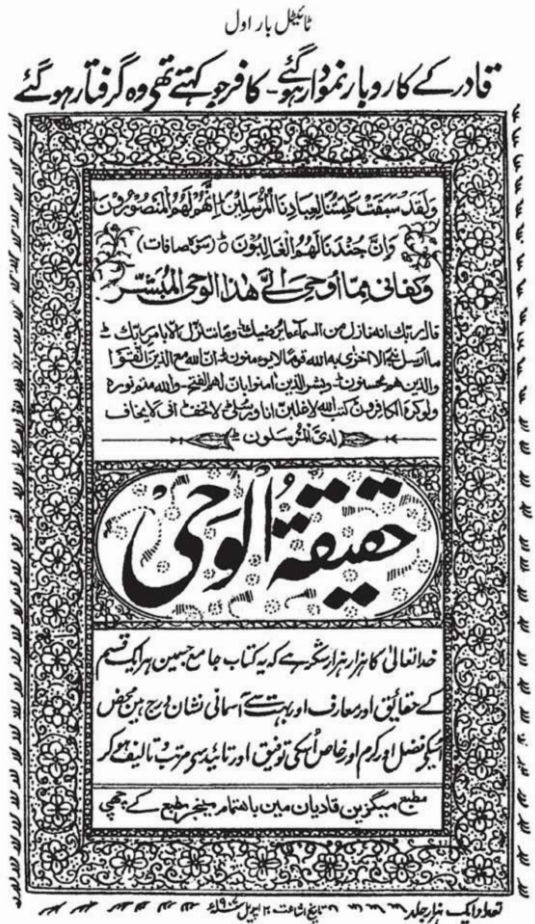 ٹائیٹل بار اول
قادر کے کاروبار نمودار ہو گئے - کافر جو کہتے تھے وہ گرفتار ہو گئے
وَلَقَدْ سَبَقَتْ كَلِمَتُنَا لِعِبَادِنَا الْمُرْسَلِيْنَ اِنَّهُمْ لَهُمُ الْمَنْصُوْرُوْنَ
وَاِنَّ جُنْدَنَا لَهُمُ الْغَالِبُوْنَ (سورة صافات)
وكفانى مما اوحى الىّ هذا الوحى المبشّر
قال ربك انه نازل من السماء ما يرضيك وما نتنزل الا بامر ربك
ما ارسل نبى الا اخزى به الله قوما لا يؤمنون ان الله مع الذين اتقوا
والذين هم محسنون وبشر الذين امنوا بان لهم الفتح والله متم نوره
ولو كره الكافرون كتب الله لاغلبن انا ورسلى لا تخف انى لا يخاف
لدىّ المرسلون
حقیقة الوحی
خدا تعالیٰ کا ہزار ہزار شکر ہے کہ یہ کتاب جامع جسمین ہر ایک قسم
کے حقائق اور معارف اور بہت سے آسمانی نشان درج ہین محض
اُسکی فضل اور کرم اور خاص اُسکی توفیق اور تائید سی مرتب و تالیف ہو کر
مطبع میگزین قادیان مین باہتمام مینجر مطبع کے چھپی
تعداد ایک ہزار جلد تاریخ اشاعت ۲۰ اپریل ۱۹۰۷ء